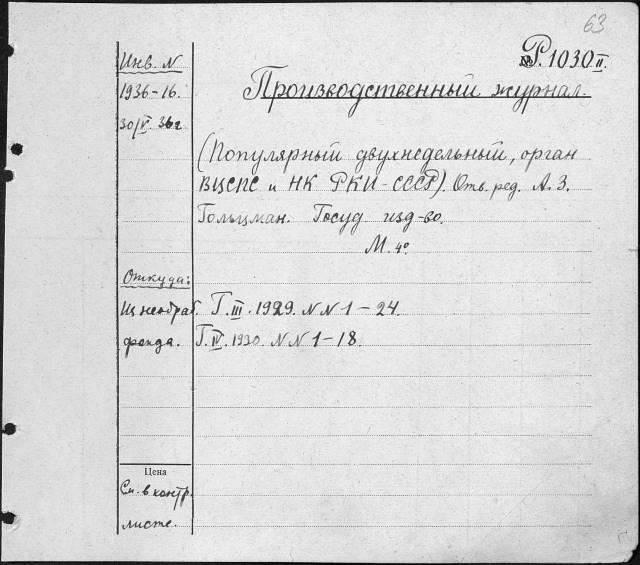 63
Р. 1030 II.
Инв. N
1936-16.
30/V. 36 г
Производственный журнал.
(Популярный двухнедельный, орган
ВЦСПС и НК РКИ-СССР). Отв. ред. А. З.
Гольцман. Госуд изд-во.
М. 4°
Откуда:
Из необраб. Г. III. 1929. NN 1-24.
фонда. Г. IV. 1930. NN 1-18.
Цена
См. в контр.
листе.